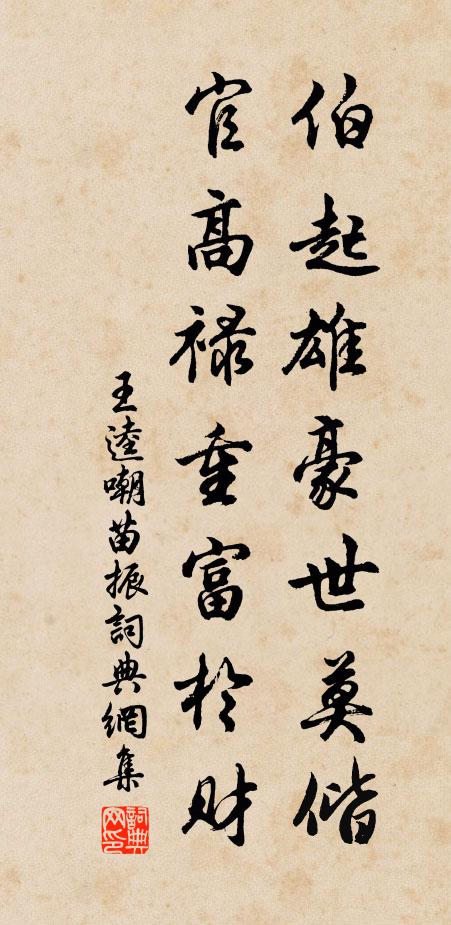 伯起雄豪世莫偕
官高禄重富於财
王逵嘲苗振詞典網集
詞典网印